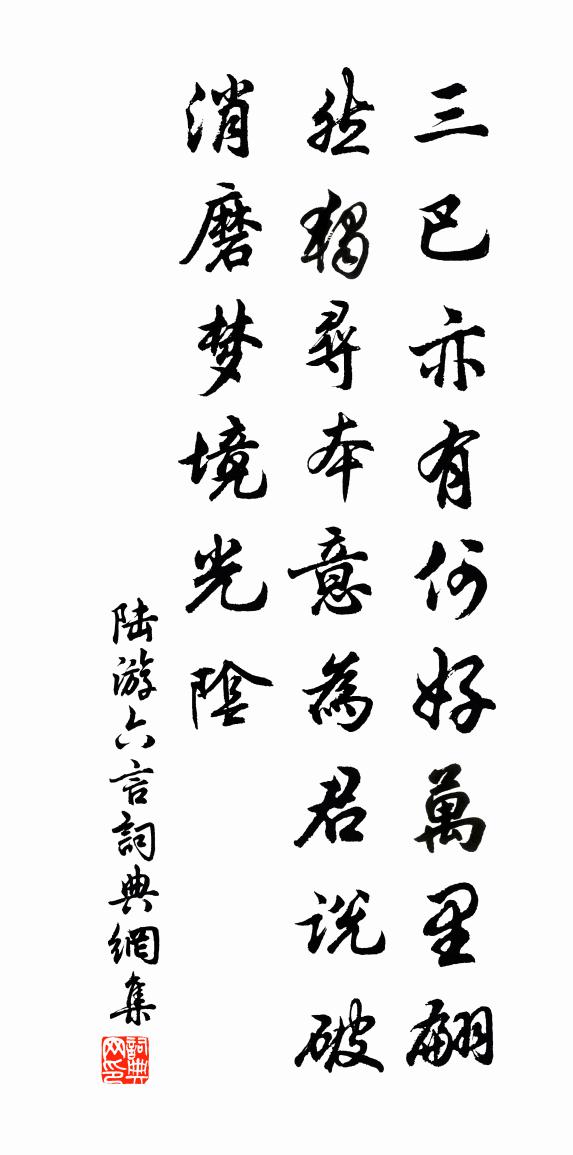 三巴亦有何好萬里翩
然獨尋本意為君説破
消磨梦境光陰
陸游六言詞典網集
詞典网印